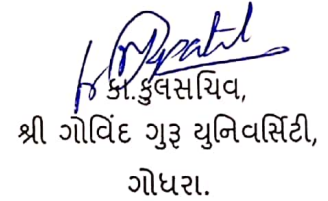 કા.કુલસચિવ,
શ્રી ગોવિંદ ગુરૂ યુનિવર્સિટી,
ગોધરા.